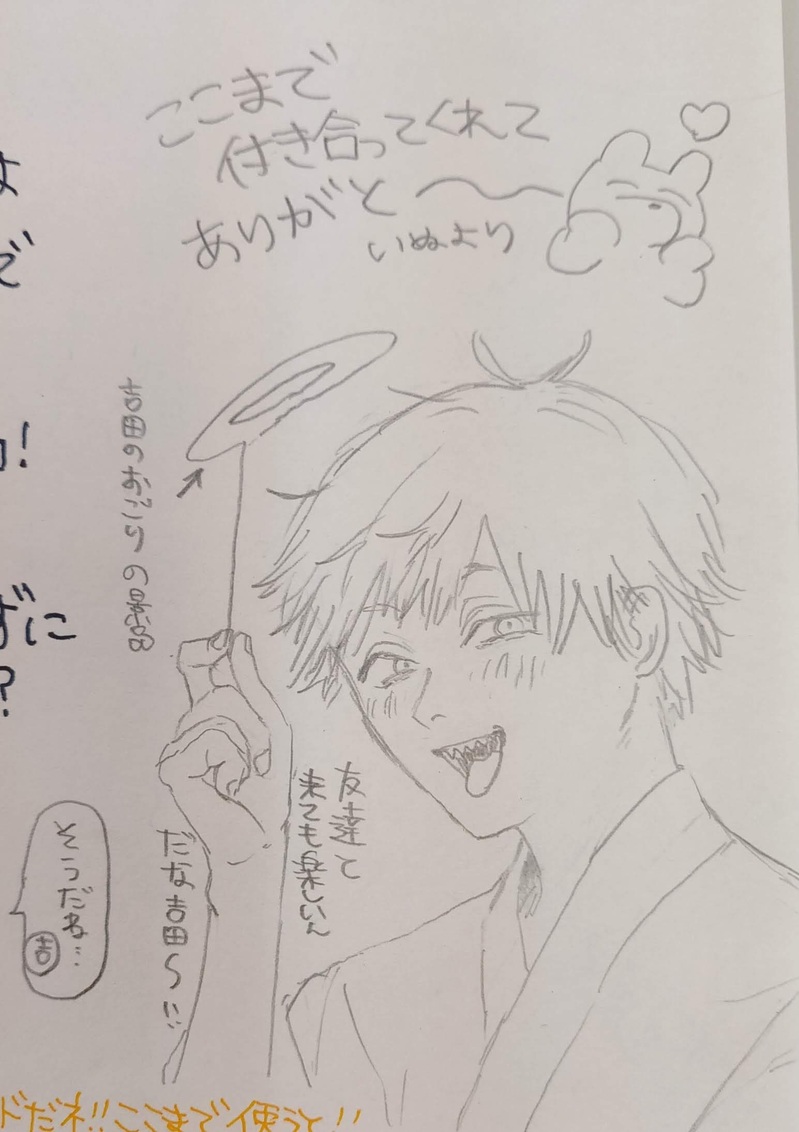 ここまで
付き合ってくれて
ありがと〜
いぬより
吉田のおごりの景品
友達と
来ても楽しいん
だな吉田〜!!
そうだね…
吉
よ
で
!
ずに
?
ドだネ!!ここまで使うと!!